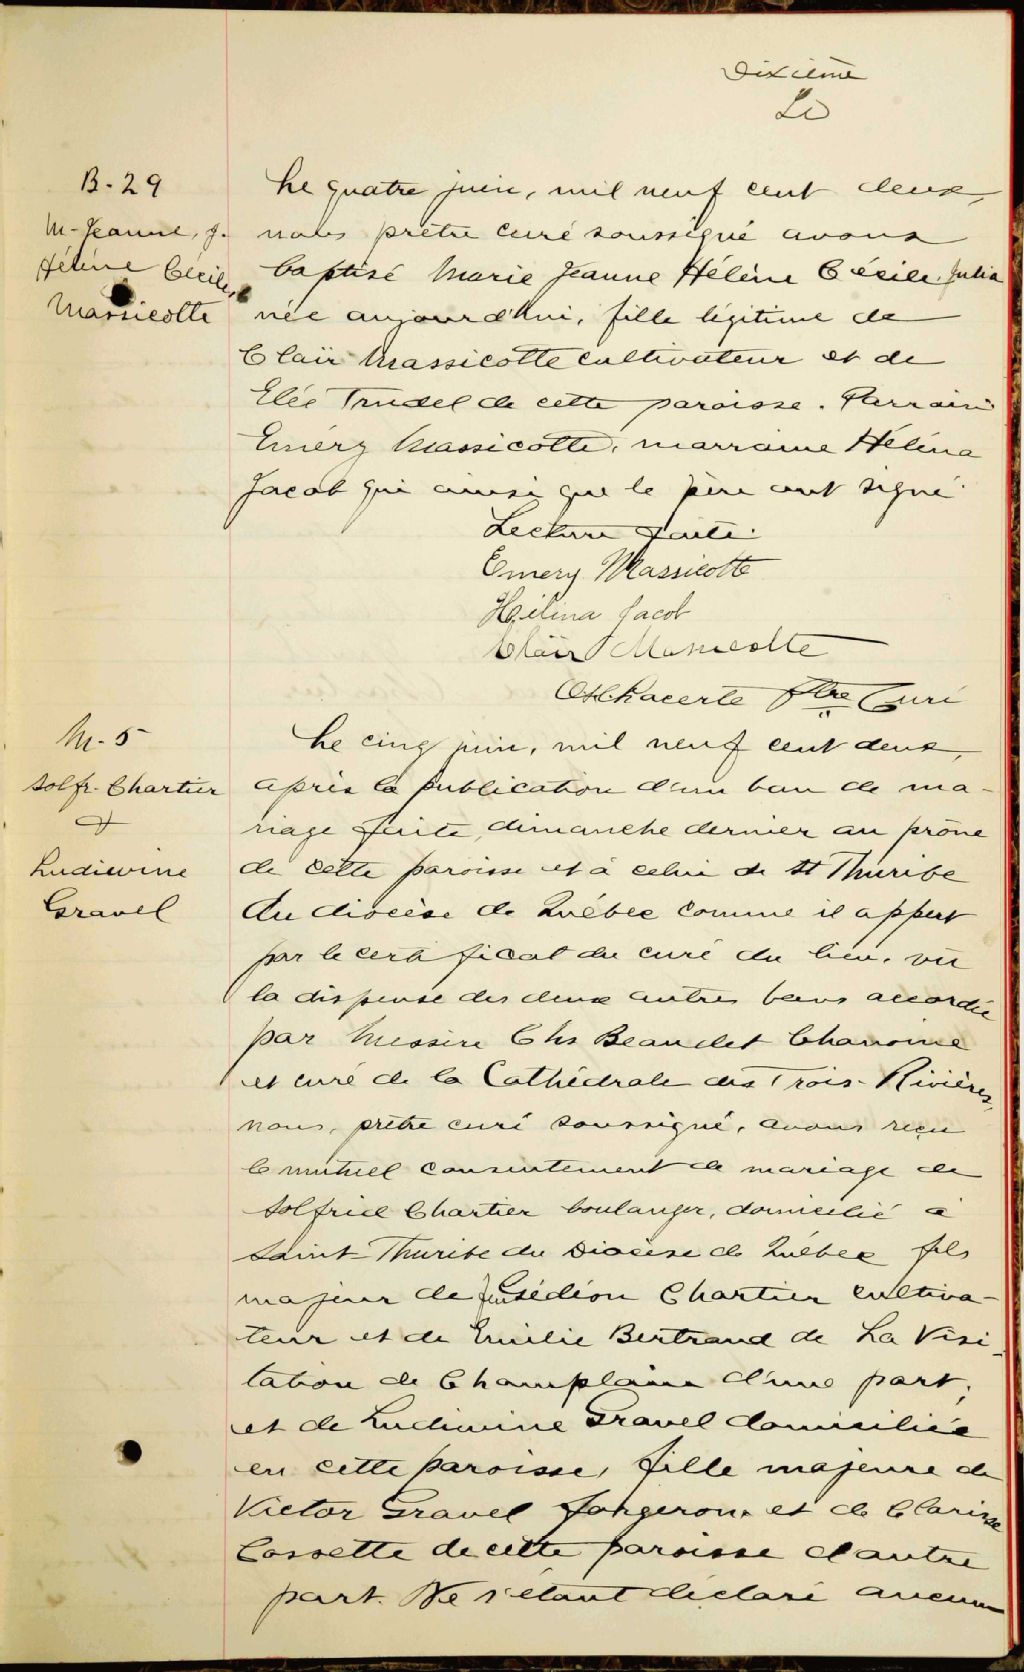 Dixième
LD
B-29
M-Jeanne, J.
Hélène Cécile,
Massicotte
Le quatre juin, mil neuf cent deux,
nous prêtre curé soussigné avons
baptisé Marie Jeanne Hélène Cécile Julia
née aujourd'hui, fille légitime de
Claïr Massicotte cultivateur et de
Elée Trudel de cette paroisse. Parrain
Emery Massicotte, marraine Hélèna
Jacob qui ainsi que le père ont signé.
Lecture faite.
Emery Massicotte
Hélina Jacob
Claïr Massicotte
Ptre Curé
M-5
Solfr. Chartier
&
Ludiwine
Gravel
Le cinq juin, mil neuf cent deux,
après la publication d'un ban de ma-
riage faite dimanche dernier au prône
de cette paroisse et à celui de St Thuribe
du diocèse de Québec comme il appert
par le certificat du curé du lieu, vu
la dispense des deux autres bans accordée
par Messire Chs Beaudet Chanoine
et curé de la Cathédrale des Trois-Rivières,
nous, prêtre curé soussigné, avons reçu
le mutuel consentement de mariage de
Solfrid Chartier boulanger, domicilié à
Saint-Thuribe du Diocèse de Québec fils
majeur de feu Gédéon Chartier cultiva-
teur et de Emilie Bertrand de La Visi-
tation de Champlain d'une part;
et de Ludiwine Gravel domiciliée
en cette paroisse, fille majeure de
Victor Gravel forgeron et de Clarisse
Cossette de cette paroisse d'autre
part. Ne s'étant déclaré aucun